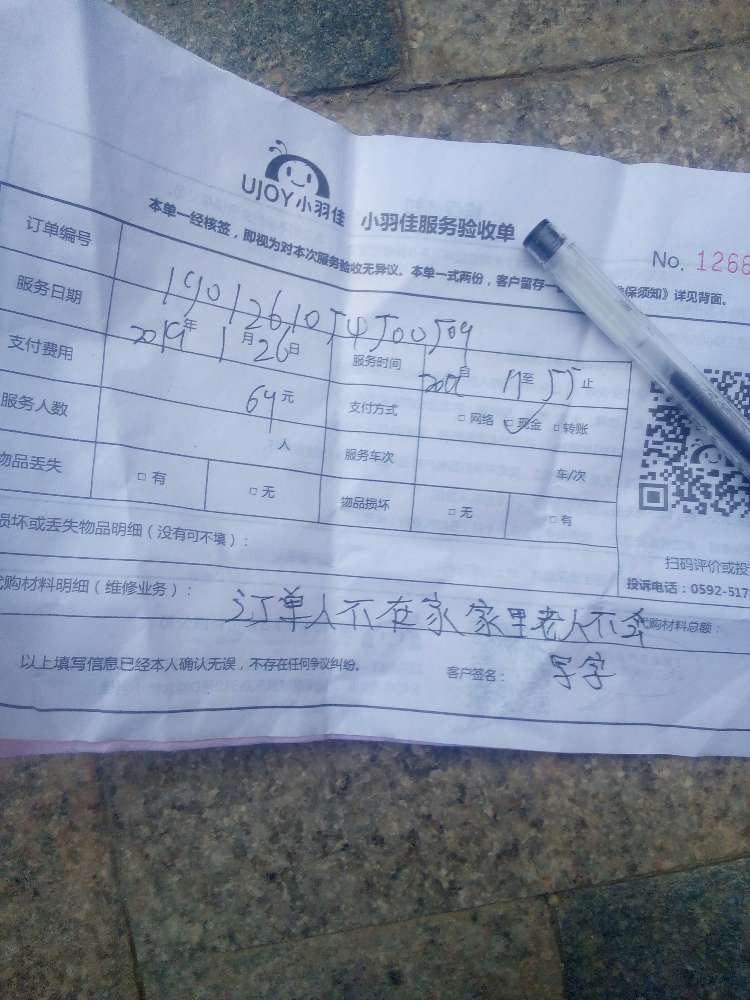 UJOY小羽佳 小羽佳服务验收单
No. 1266
本单一经核签，即视为对本次服务验收无异议。本单一式两份，客户留存一
保须知》详见背面。
订单编号 1901261054500509
服务日期 2019年1月26日 服务时间 自 至55止
支付费用 64元 支付方式 □网络 现金 □转账
服务人数 人 服务车次 车/次
物品丢失 □有 □无 物品损坏 □无 □有
损坏或丢失物品明细（没有可不填）：
扫码评价或投
代购材料明细（维修业务）：
投诉电话：0592-517
订单人不在家家里老人不会
代购材料总额：
以上填写信息已经本人确认无误，不存在任何争议纠纷。 客户签名： 写字